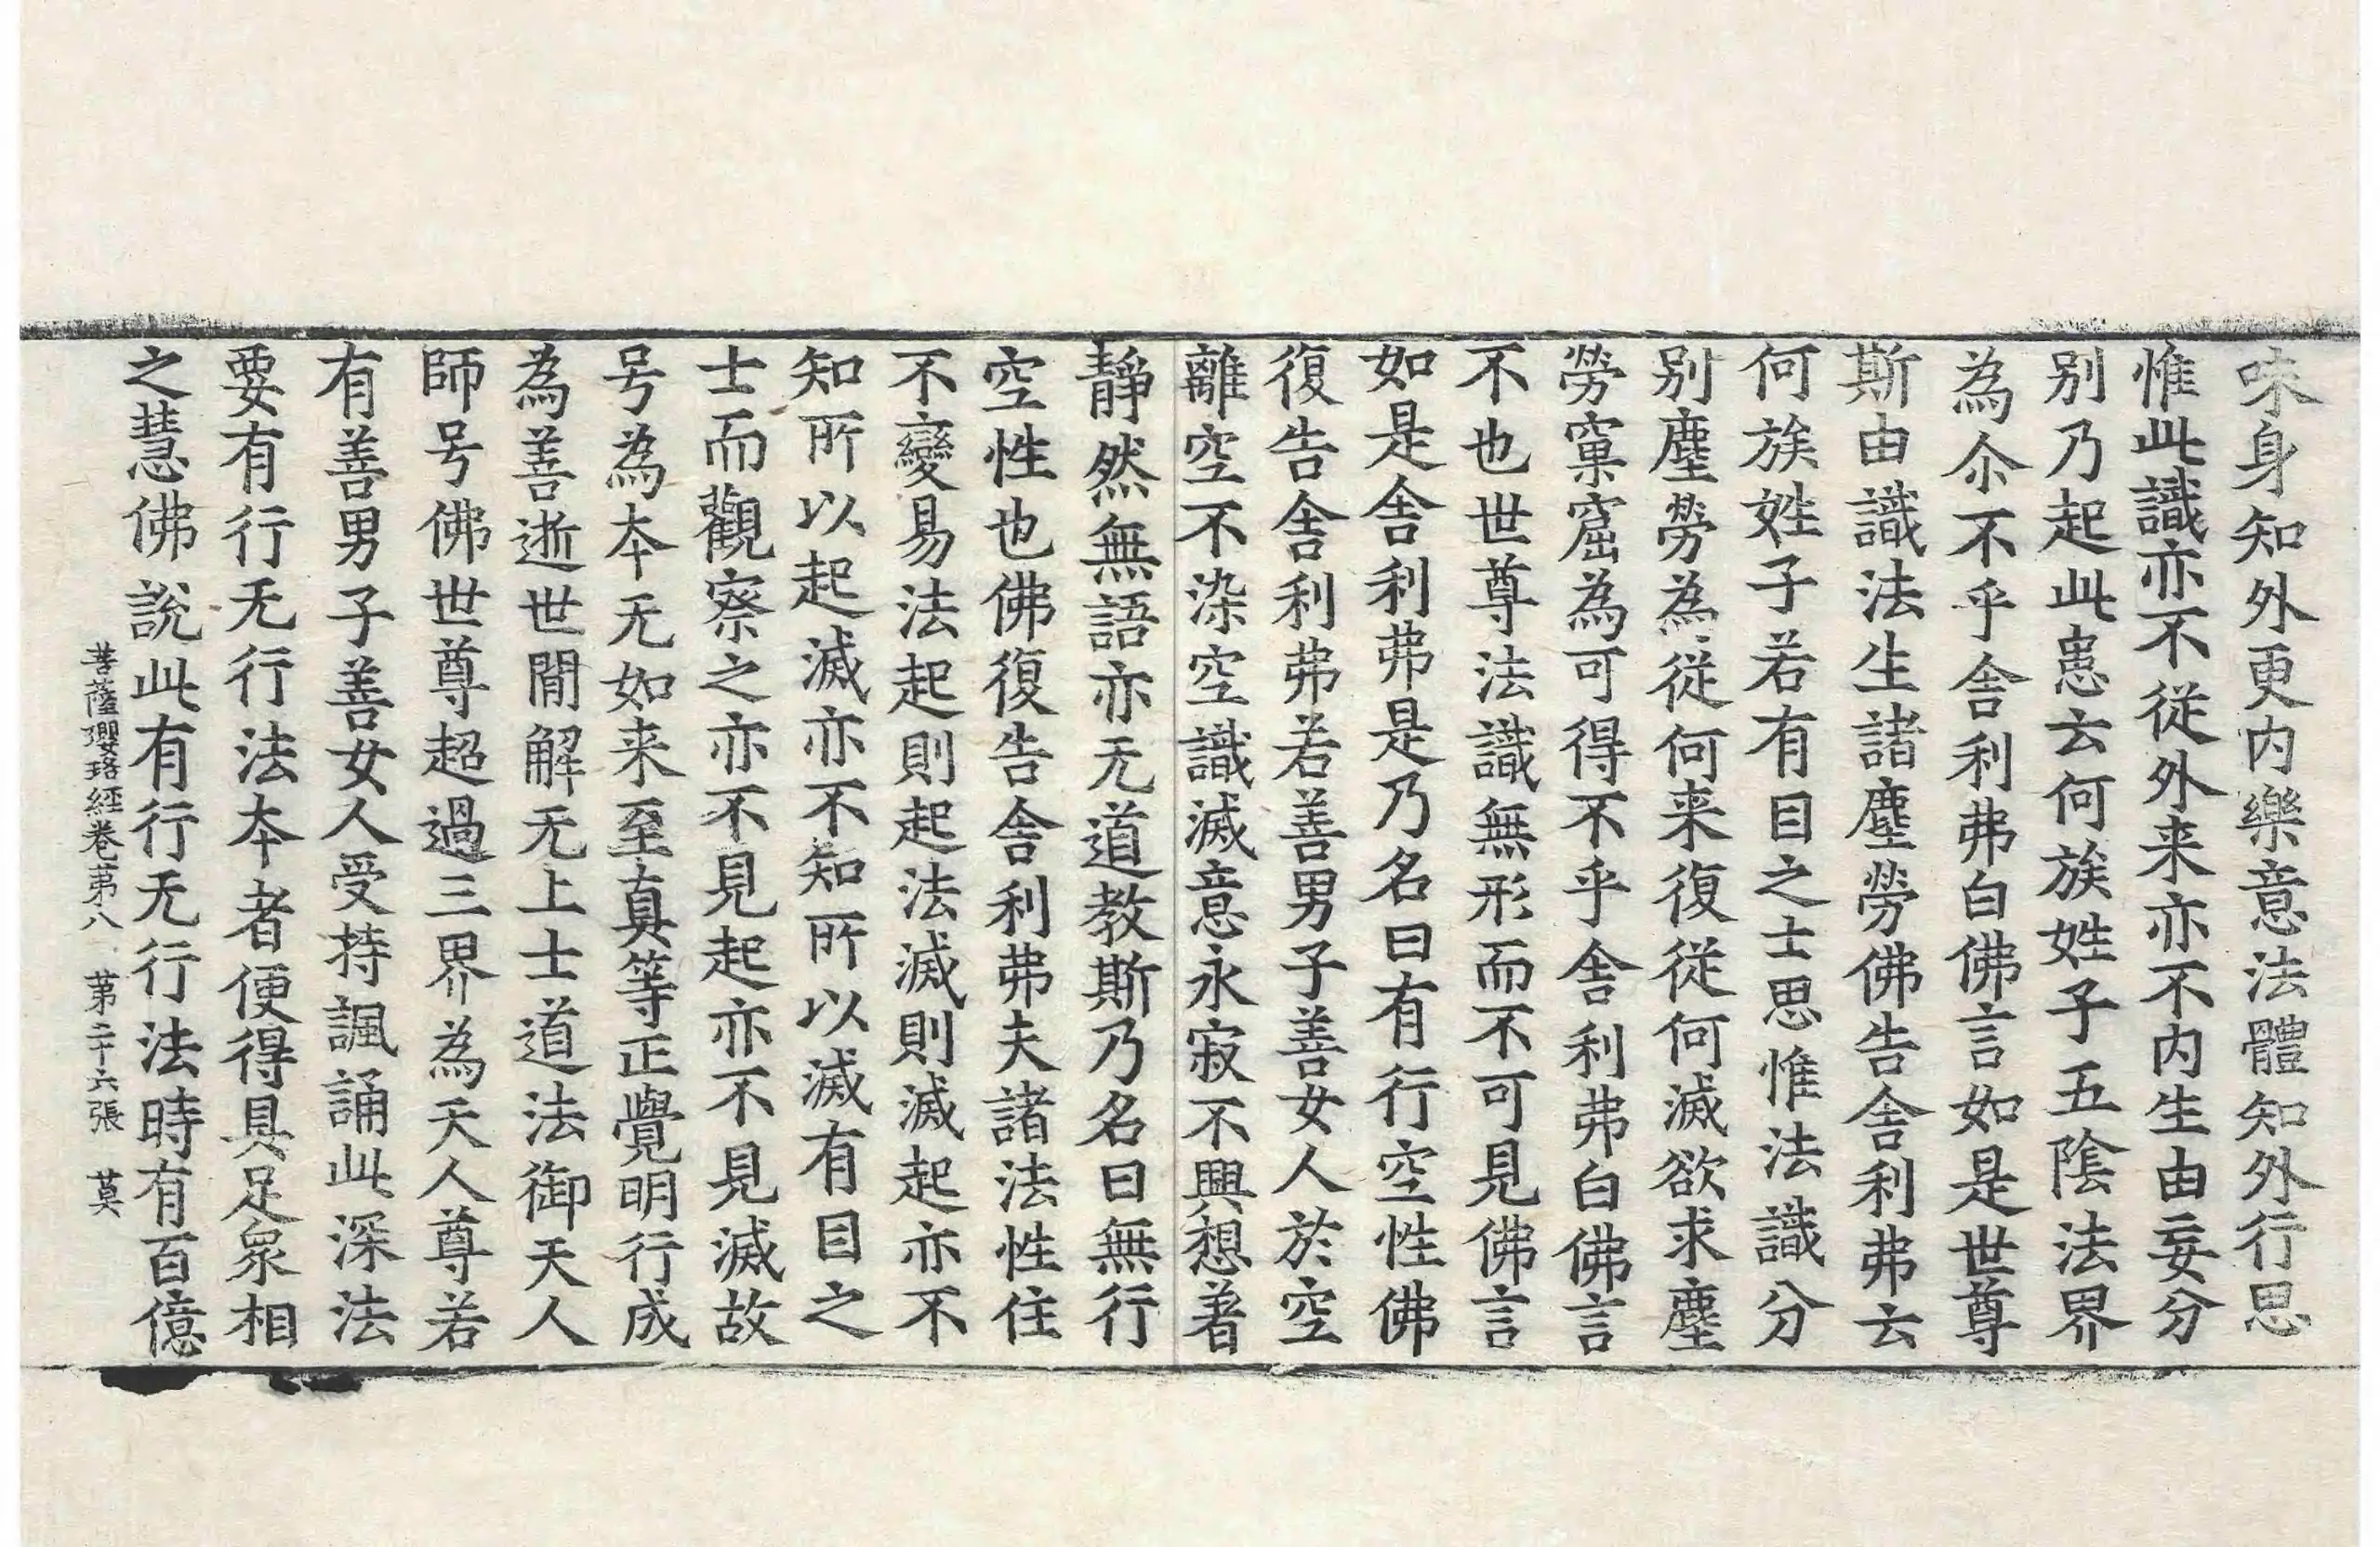 味身知外更内樂意法體知外行思
惟此識亦不從外来亦不内生由妄分
别乃起此患云何族姓子五陰法界
為尒不乎舎利弗白佛言如是世尊
斯由識法生諸塵勞佛告舎利弗云
何族姓子若有目之士思惟法識分
别塵勞為從何来復從何滅欲求塵
勞窠窟為可得不乎舎利弗白佛言
不也世尊法識無形而不可見佛言
如是舎利弗是乃名曰有行空性佛
復告舎利弗若善男子善女人於空
離空不染空識滅意永寂不興想著
靜然無語亦无道教斯乃名曰無行
空性也佛復告舎利弗夫諸法性住
不變易法起則起法滅則滅起亦不
知所以起滅亦不知所以滅有目之
士而觀察之亦不見起亦不見滅故
号為夲无如来至真等正覺明行成
為善逝世間解无上士道法御天人
師号佛世尊超過三界為天人尊若
有善男子善女人受持諷誦此深法
要有行无行法夲者便得具足衆相
之慧佛說此有行无行法時有百億
菩薩瓔珞經卷苐八 苐二十六張 莫